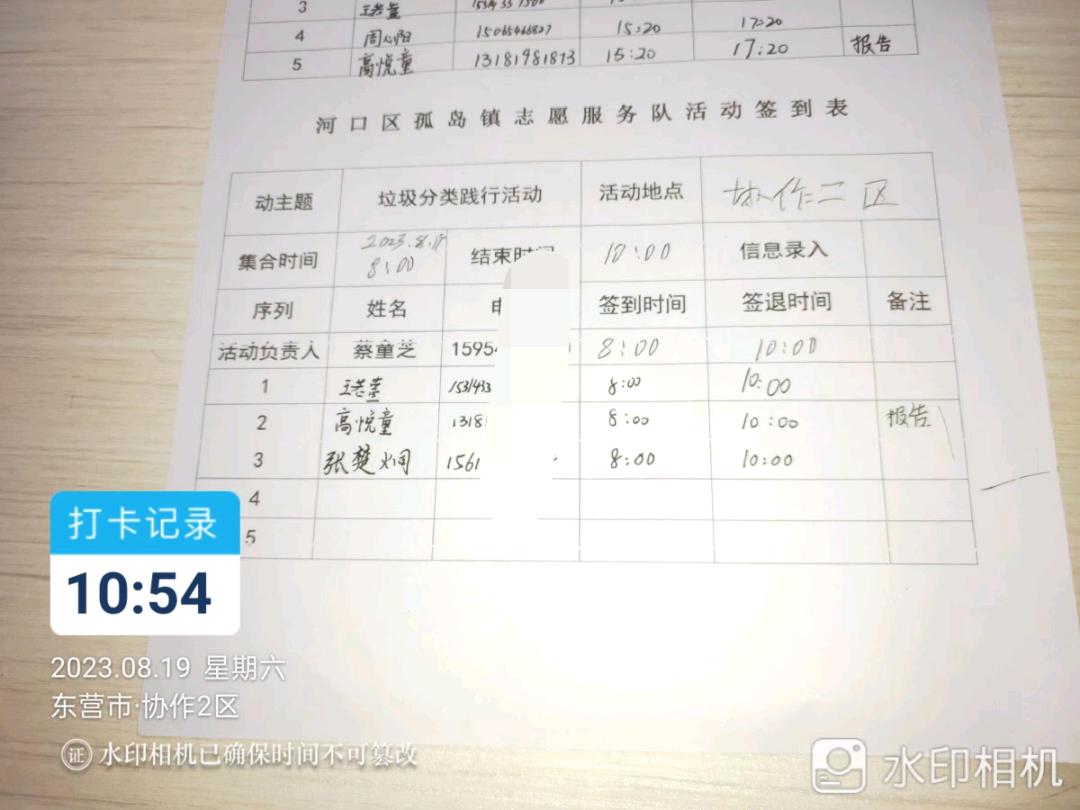 3
4 周心阳 15:20 17:20
5 高悦童 13181981813 15:20 17:20 报告
河口区孤岛镇志愿服务队活动签到表
动主题 垃圾分类践行活动 活动地点 协作二区
集合时间 2023.8.19 8:00 结束时间 10:00 信息录入
序列 姓名 签到时间 签退时间 备注
活动负责人 蔡童芝 1595 8:00 10:00
1 8:00 10:00
2 高悦童 1318 8:00 10:00 报告
3 张楚炯 1561 8:00 10:00
4
5
打卡记录
10:54
2023.08.19 星期六
东营市·协作2区
证 水印相机已确保时间不可篡改
水印相机